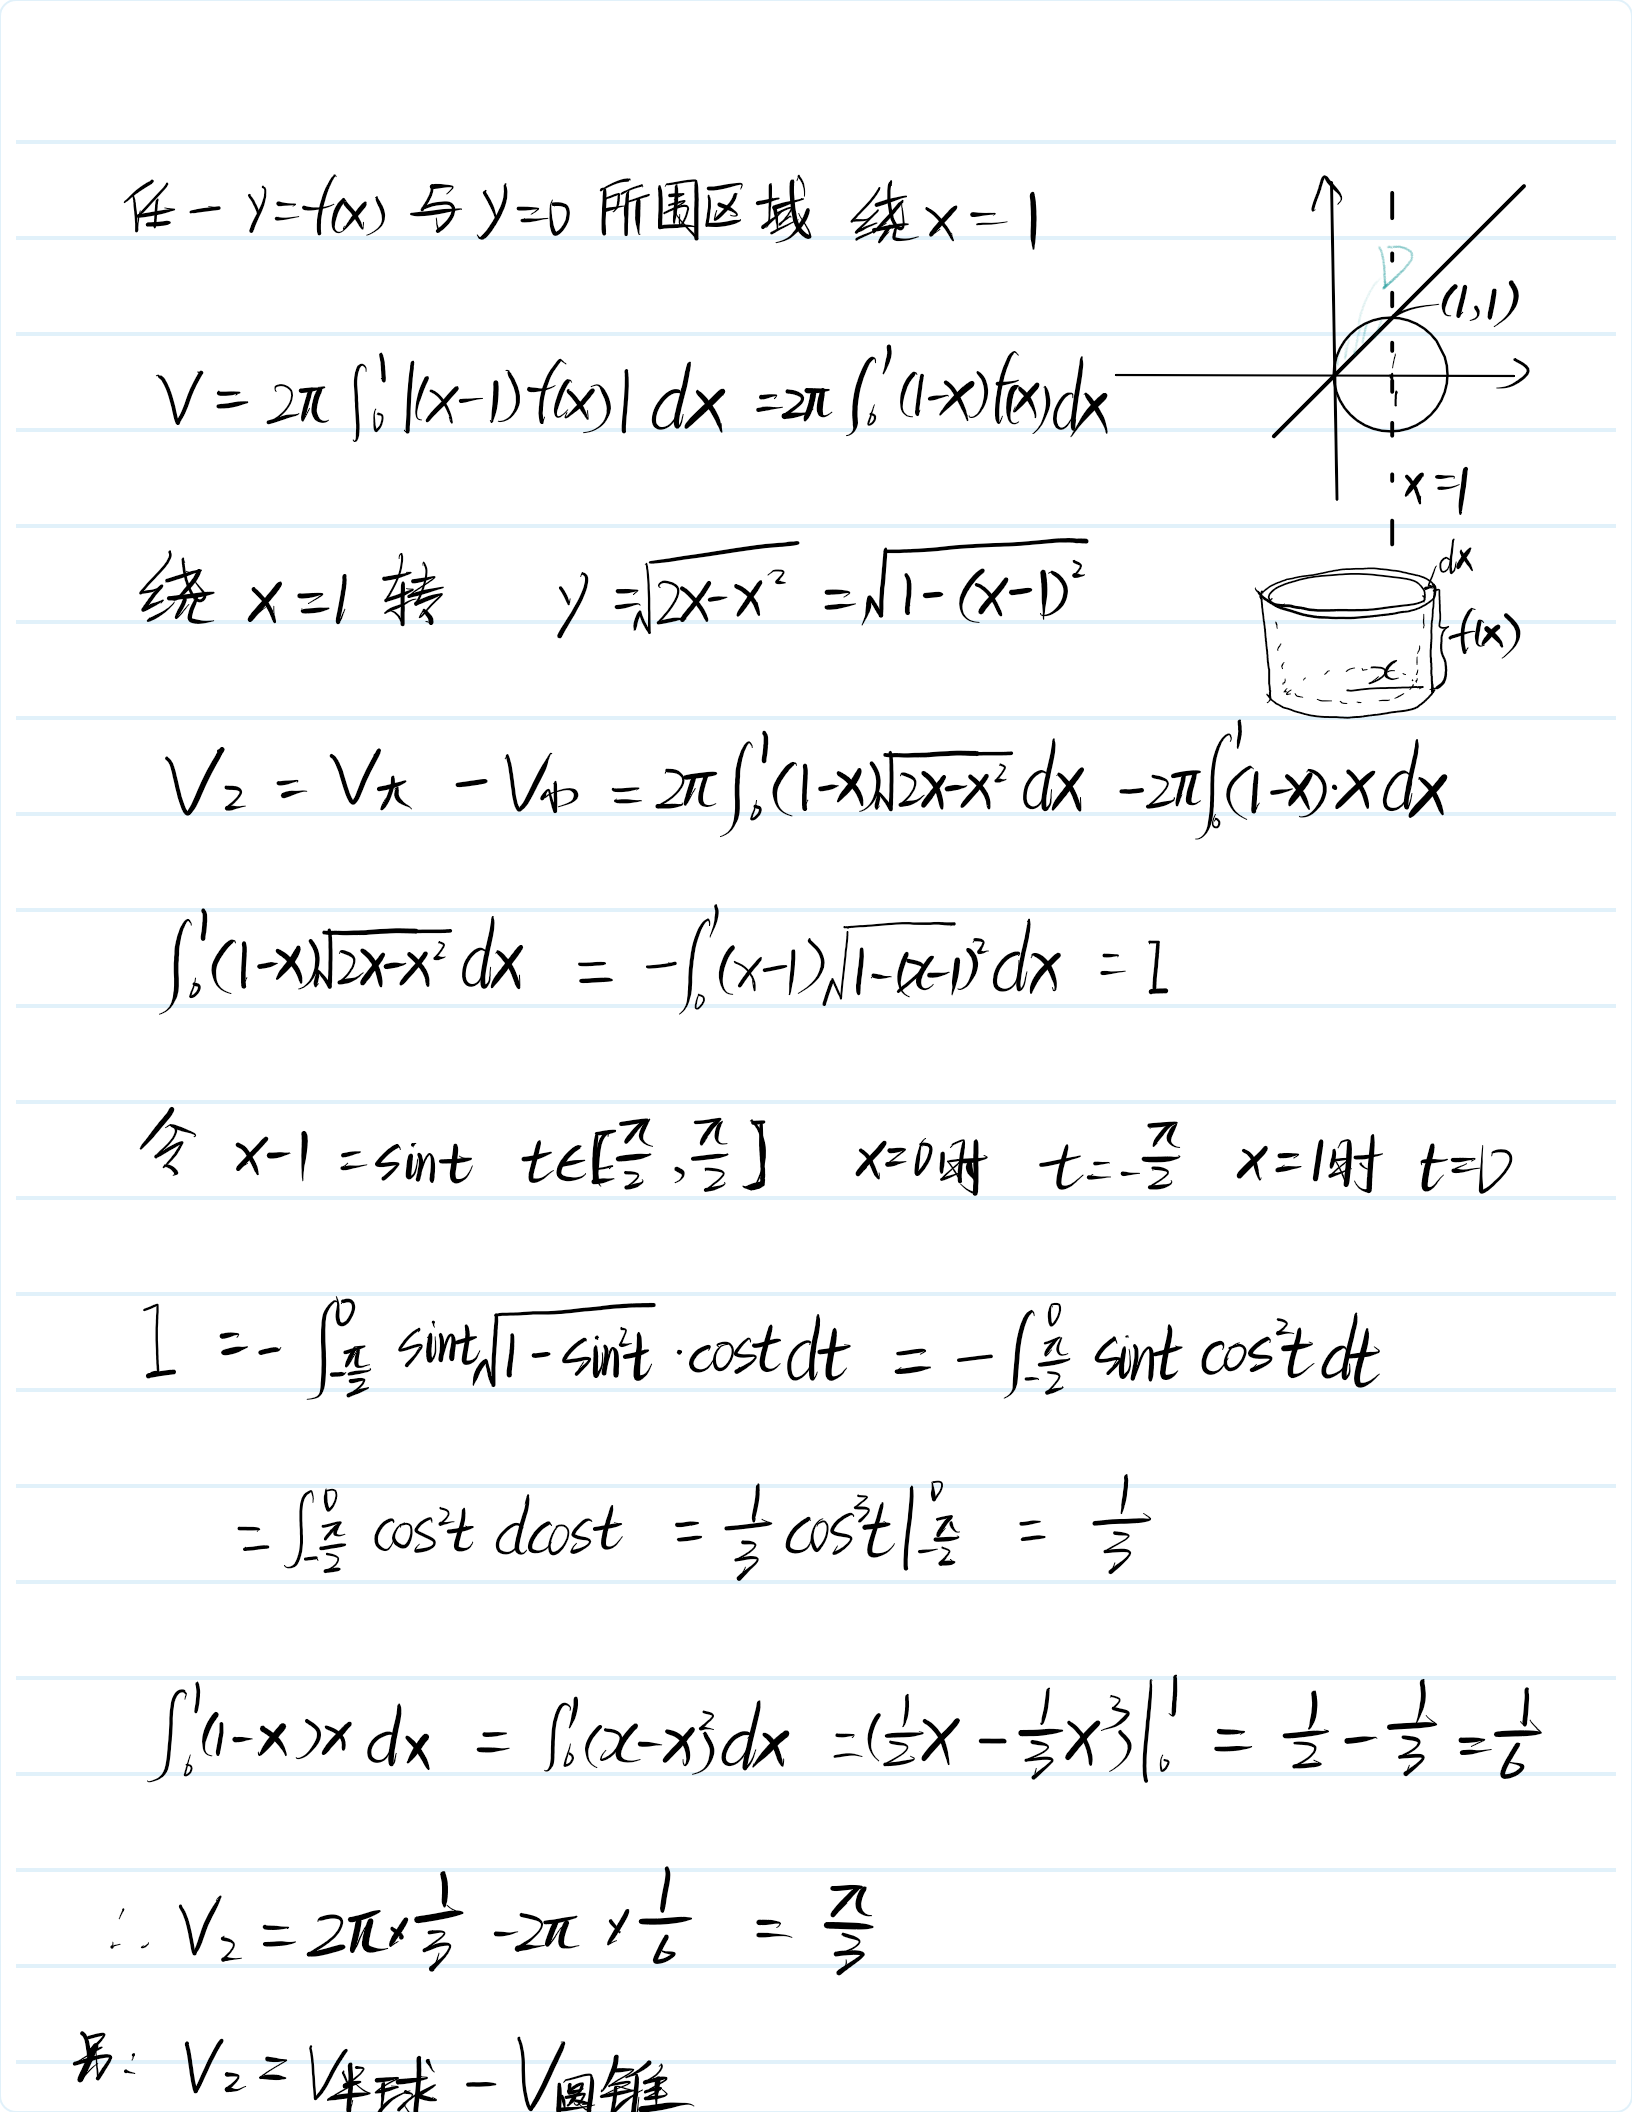 任一 y=f(x) 与 y=0 所围区域 绕 x=1
D
(1,1)
V = 2π∫₀¹|(x-1)f(x)|dx = 2π∫₀¹(1-x)f(x)dx
x=1
dx
绕 x=1 转 y=√(2x-x²) = √(1-(x-1)²)
f(x)
x
V₂ = V大 - V中 = 2π∫₀¹(1-x)√(2x-x²) dx - 2π∫₀¹(1-x)·x dx
∫₀¹(1-x)√(2x-x²) dx = -∫₀¹(x-1)√(1-(x-1)²) dx = I
令 x-1 = sint t∈[π/2, π/2] x=0时 t=-π/2 x=1时 t=0
I = -∫_{-π/2}^0 sint√(1-sin²t)·costdt = -∫_{-π/2}^0 sint cos²t dt
= ∫_{-π/2}^0 cos²t dcost = 1/3 cos³t|_{-π/2}^0 = 1/3
∫₀¹(1-x)x dx = ∫₀¹(x-x²)dx = (1/2x - 1/3x³)|₀¹ = 1/2 - 1/3 = 1/6
∴ V₂ = 2π×1/3 - 2π×1/6 = π/3
另: V₂ = V半球 - V圆锥